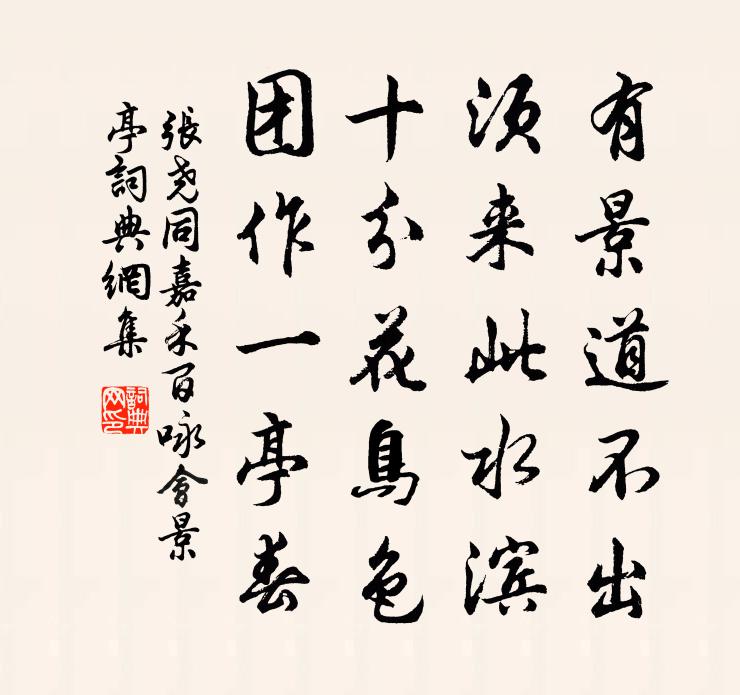 有景道不出
须来此水滨
十分花鳥色
团作一亭春
張尧同嘉禾百咏會景
亭詞典網集
詞典
网印